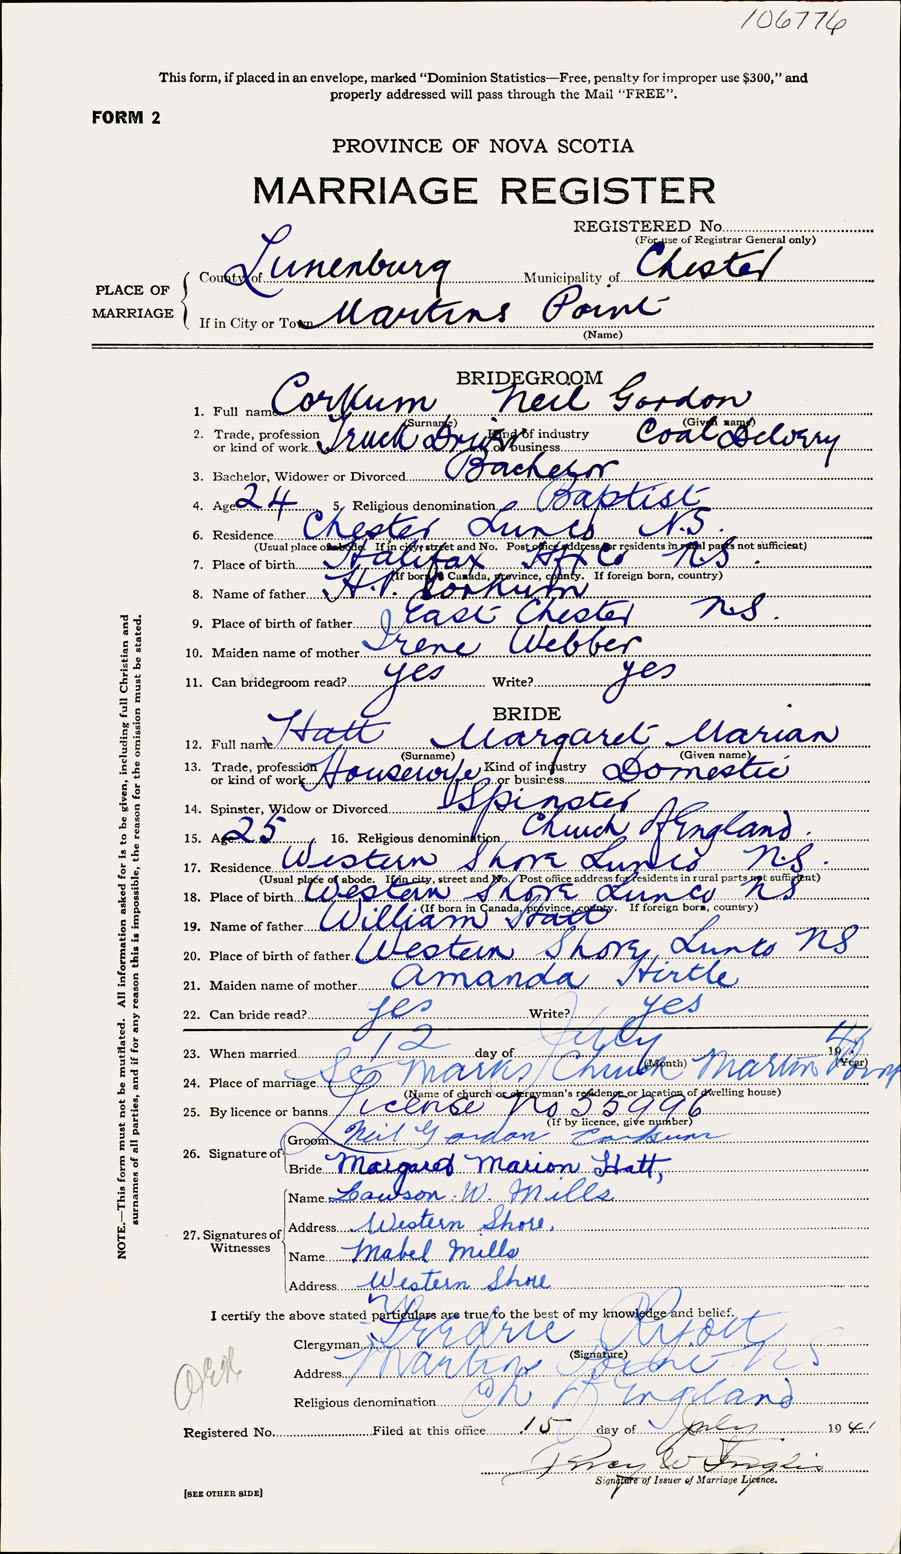 106776
This form, if placed in an envelope, marked "Dominion Statistics—Free, penalty for improper use $300," and
properly addressed will pass through the Mail "FREE".
FORM 2
PROVINCE OF NOVA SCOTIA
MARRIAGE REGISTER
REGISTERED No.
(For use of Registrar General only)
PLACE OF MARRIAGE
County of Lunenburg Municipality of Chester
If in City or Town Martins Point
(Name)
BRIDEGROOM
1. Full name Corkum Neil Gordon
(Surname) (Given name)
2. Trade, profession or kind of work Truck Driver Kind of industry or business Coal Delvery
3. Bachelor, Widower or Divorced Bachelor
4. Age 24 5. Religious denomination Baptist
6. Residence Chester Lun Co N.S.
(Usual place of abode. If in city, street and No. Post office address for residents in rural parts not sufficient)
7. Place of birth Halifax Hfx Co N.S.
(If born in Canada, province, county. If foreign born, country)
8. Name of father H.P. Corkum
9. Place of birth of father East Chester N.S.
10. Maiden name of mother Irene Webber
11. Can bridegroom read? yes Write? yes
BRIDE
12. Full name Hatt Margaret Marian
(Surname) (Given name)
13. Trade, profession or kind of work Housewife Kind of industry or business Domestic
14. Spinster, Widow or Divorced Spinster
15. Age 25 16. Religious denomination Church of England.
17. Residence Western Shore Lun Co N.S.
(Usual place of abode. If in city, street and No. Post office address for residents in rural parts not sufficient)
18. Place of birth Western Shore Lun Co NS
(If born in Canada, province, county. If foreign born, country)
19. Name of father William Hatt
20. Place of birth of father Western Shore, Lun Co NS
21. Maiden name of mother Amanda Hirtle
22. Can bride read? yes Write? yes
23. When married 12 day of July 1941
(Month) (Year)
24. Place of marriage St Marks Church Martin Point
(Name of church or clergyman's residence or location of dwelling house)
25. By licence or banns License No 55996
(If by licence, give number)
26. Signature of
Groom Neil Gordon Corkum
Bride Margaret Marion Hatt,
27. Signatures of Witnesses
Name Lawson W. Mills
Address Western Shore.
Name Mabel Mills
Address Western Shore
I certify the above stated particulars are true to the best of my knowledge and belief.
Clergyman
(Signature)
Address Martin Point N S
Religious denomination Ch of England
Registered No. Filed at this office 15 day of July 1941
Percy W Inglis
Signature of Issuer of Marriage Licence.
[SEE OTHER SIDE]
NOTE.—This form must not be mutilated. All information asked for is to be given, including full Christian and
surnames of all parties, and if for any reason this is impossible, the reason for the omission must be stated.